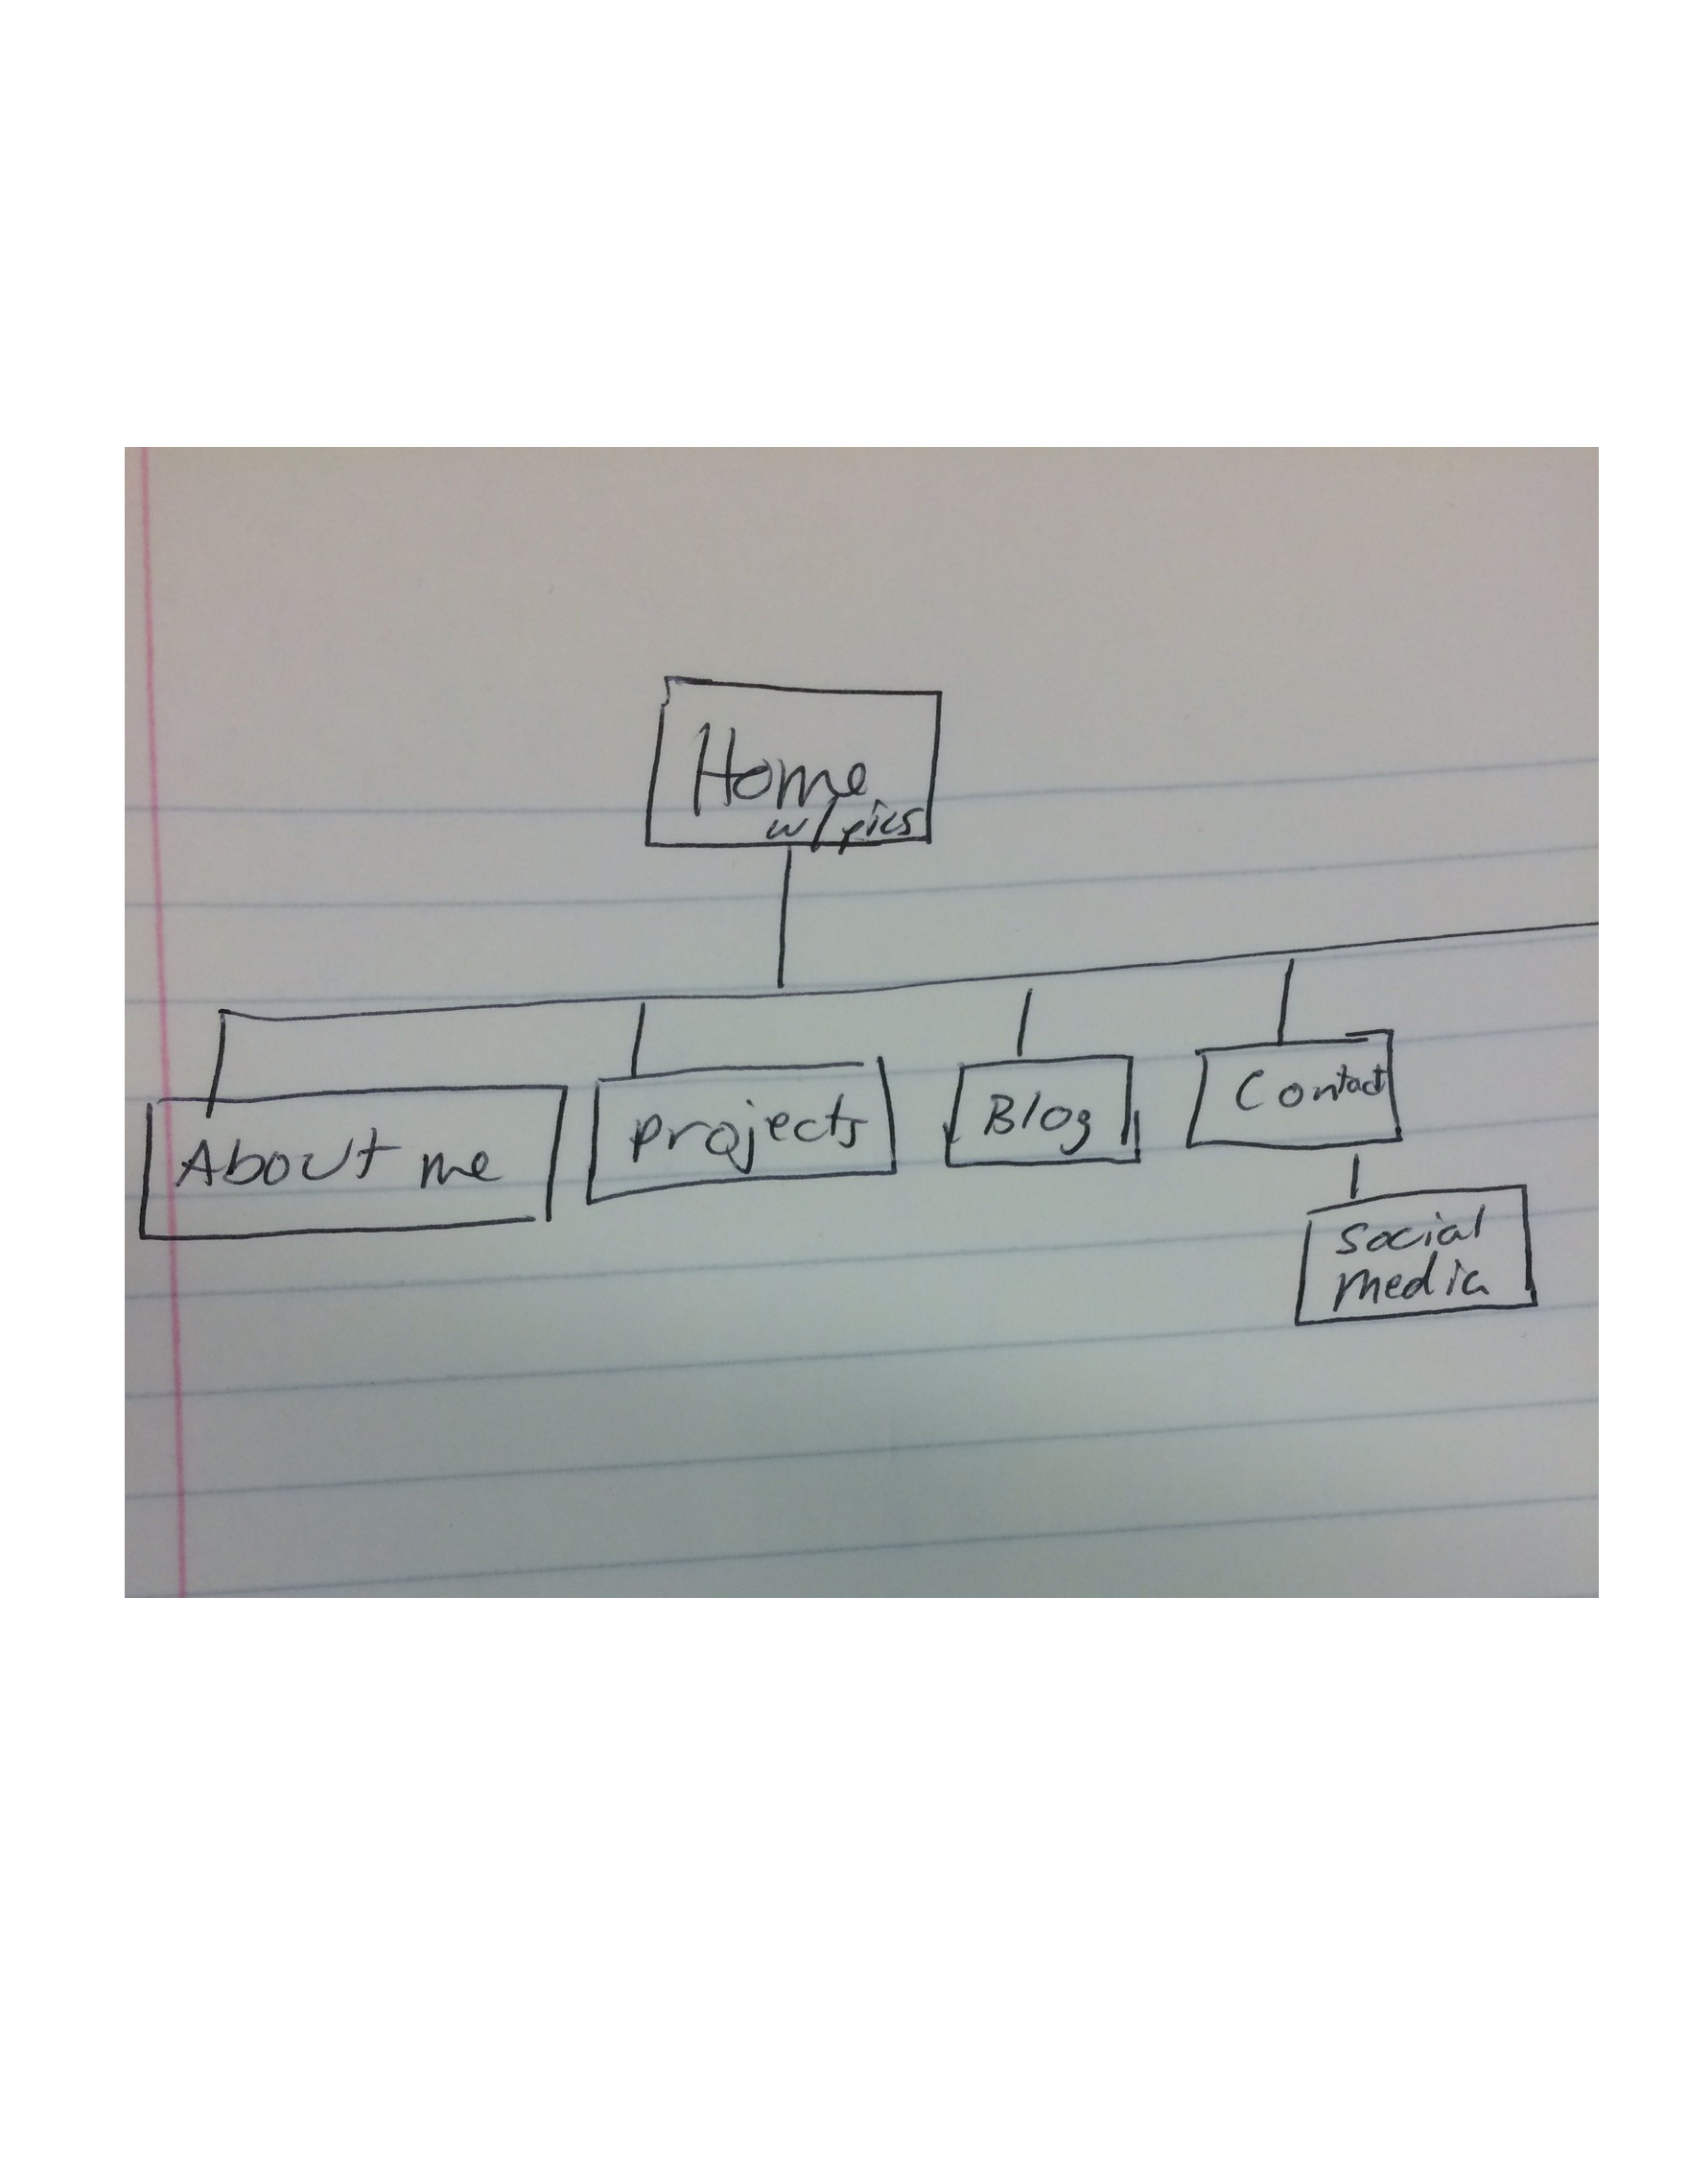 Home
w/pics
About me
projects
Blog
Contact
social
media